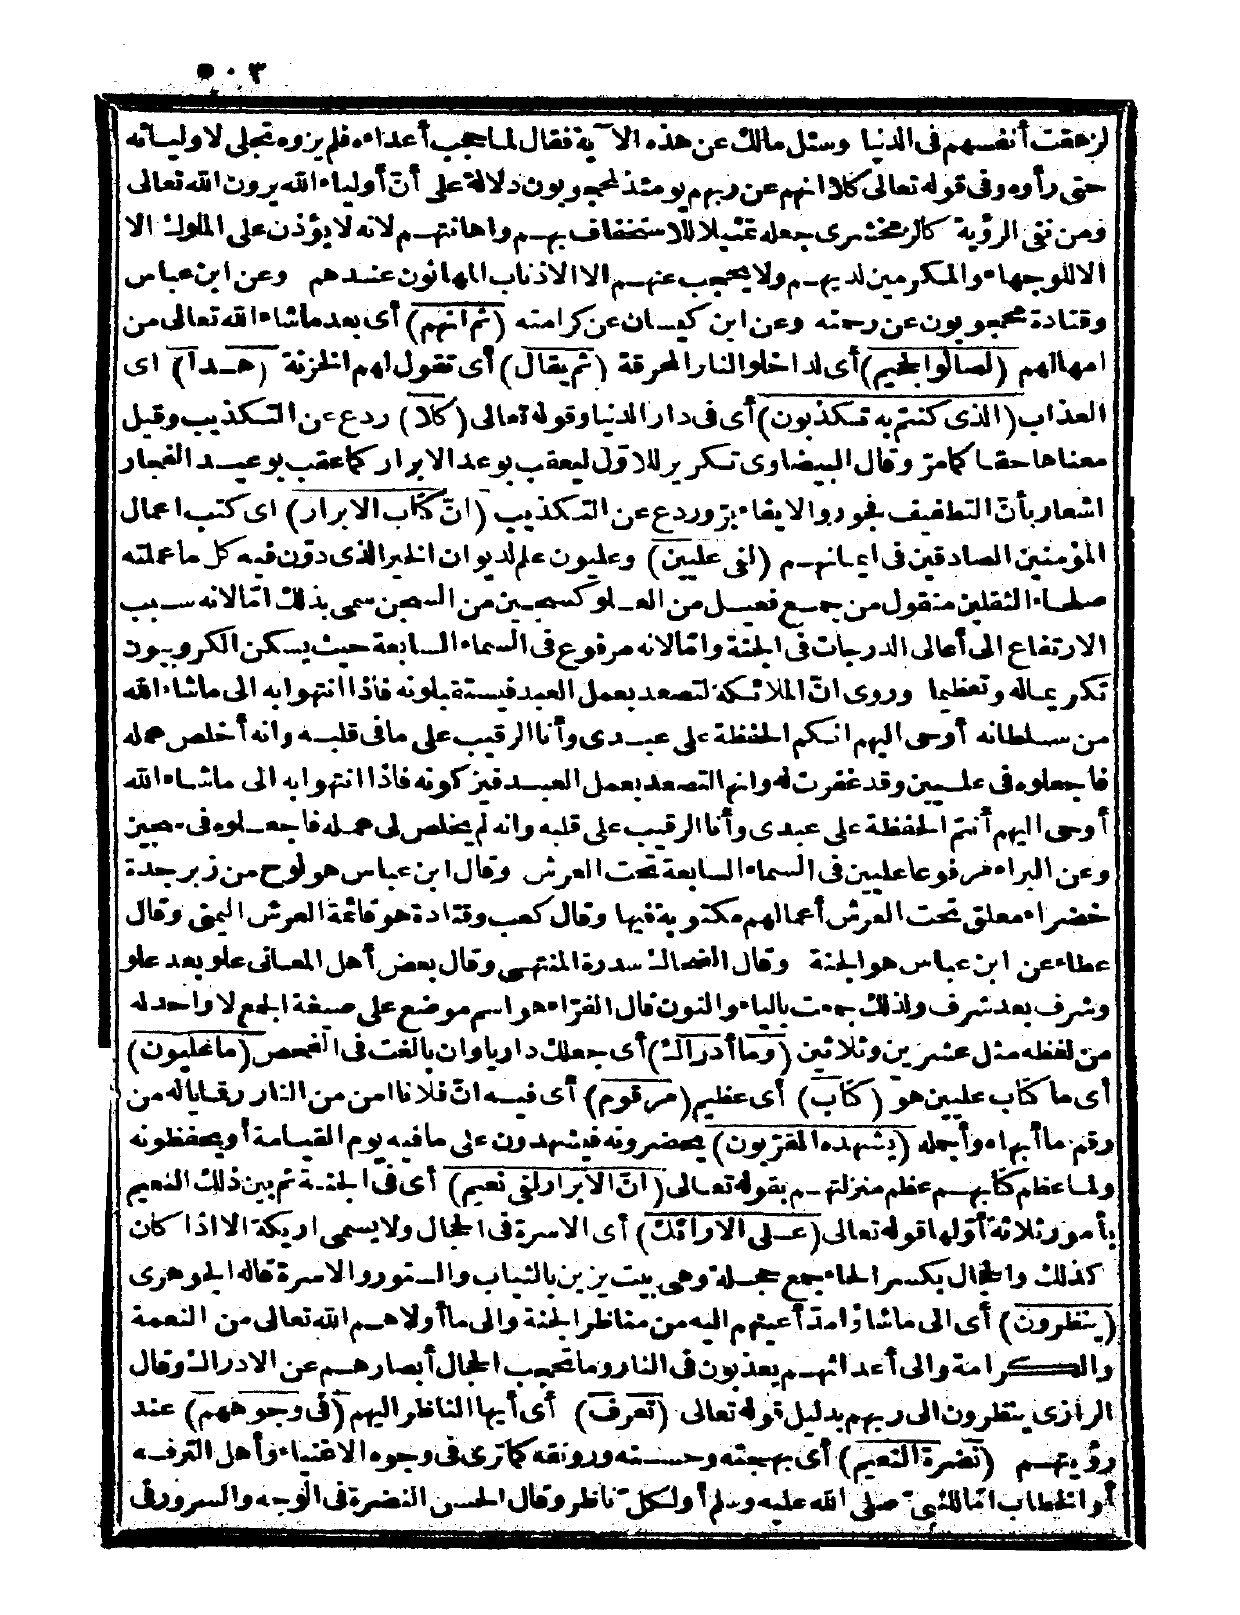 ٥٠٣
لزهقت أنفسهم فى الدنيا وسئل مالك عن هذه الآية فقال لما حجب أعداءه فلم يروه تجلى لاوليائه
حتى رأوه وفى قوله تعالى كلا انهم عن ربهم يومئذ لمحجوبون دلالة على أنّ أولياء الله يرون الله تعالى
ومن نفى الرؤية كالزمخشرى جعله تمثيلا للاستخفاف بهم واهانتهم لانه لا يؤذن على الملوك الا
الا للوجهاء والمكرمين لديهم ولا يحجب عنهم الا الاذناب المهانون عندهم وعن ابن عباس
وقتادة محجوبون عن رحمته وعن ابن كيسان عن كرامته (ثم انهم) أى بعد ماشاء الله تعالى من
امهالهم (لصالوا الجحيم) أى لداخلوا النار المحرقة (ثم يقال) أى تقول لهم الخزنة (هـذا) اى
العذاب (الذى كنتم به تكذبون) أى فى دار الدنيا وقوله تعالى (كلا) ردع عن التكذيب وقيل
معناها حقا كما مرّ وقال البيضاوى تكرير للاوّل ليعقب بوعد الابرار كما عقب بوعيد الفجار
اشعار بأنّ التطفيف فجور والايفاء برّ وردع عن التكذيب (انّ كتاب الابرار) اى كتب اعمال
المؤمنين الصادقين فى ايمانهم (لفى عليين) وعليون علم لديوان الخير الذى دوّن فيه كل ما عملته
صلحاء الثقلين منقول من جمع فعيل من العلو كسجين من السجن سمى بذلك امّا لانه سبب
الارتفاع الى أعالى الدرجات فى الجنة وامّا لانه مرفوع فى السماء السابعة حيث يسكن الكروبيون
تكريما له وتعظيما وروى انّ الملائكة لتصعد بعمل العبد فيستقبلونه فاذا انتهوا به الى ماشاء الله
من سلطانه أوحى اليهم انكم الحفظة على عبدى وأنا الرقيب على ما فى قلبه وانه أخلص عمله
فاجعلوه فى عليين وقد غفرت له وانها لتصعد بعمل العبد فيزكونه فاذا انتهوا به الى ماشاء الله
أوحى اليهم أنتم الحفظة على عبدى وأنا الرقيب على قلبه وانه لم يخلص لى عمله فاجعلوه فى سجين
وعن البراء مرفوعا عليين فى السماء السابعة تحت العرش وقال ابن عباس هو لوح من زبرجدة
خضراء معلق تحت العرش أعمالهم مكتوبة فيها وقال كعب وقتادة هو قائمة العرش اليمنى وقال
عطاء عن ابن عباس هو الجنة وقال الضحاك سدرة المنتهى وقال بعض أهل المعانى علو بعد علو
وشرف بعد شرف ولذلك جمعت بالياء والنون قال الفرّاء هو اسم موضع على صيغة الجمع لا واحد له
من لفظه مثل عشرين وثلاثين (وما أدراك) أى جعلك داريا وان بالغت فى الفحص (ما عليون)
أى ما كتاب عليين هو (كتاب) أى عظيم (مرقوم) أى فيه انّ فلانا امن من النار رقما ياله من
رقم ما أبهاه وأجمله (يشهده المقرّبون) يحضرونه فيشهدون على ما فيه يوم القيامة أو يحفظونه
ولما عظم كتابهم عظم منزلتهم بقوله تعالى (انّ الابرار لفى نعيم) أى فى الجنة ثم بين ذلك النعيم
بأمور ثلاثة أوّلها قوله تعالى (عـلى الارائك) أى الاسرة فى الحجال ولا يسمى اريكة الا اذا كان
كذلك والحجال بكسر الحاء جمع حجلة وهى بيت يزين بالثياب والستور والاسرة قاله الجوهرى
(ينظرون) أى الى ماشاؤا مدّ أعينهم اليه من مناظر الجنة والى ما أولاهم الله تعالى من النعمة
والكرامة والى أعدائهم يعذبون فى النار وما تحجب الحجال أبصارهم عن الادراك وقال
الرازى ينظرون الى ربهم بدليل قوله تعالى (تعرف) أى أيها الناظر اليهم (فى وجوههم) عند
رؤيتهم (نضرة النعيم) أى بهجته وحسنه ورونقه كما ترى فى وجوه الاغنياء وأهل الترفه
أو الخطاب امّا للنبىّ صلى الله عليه وسلم أو لكلّ ناظر وقال الحسن النضرة فى الوجه والسرور فى